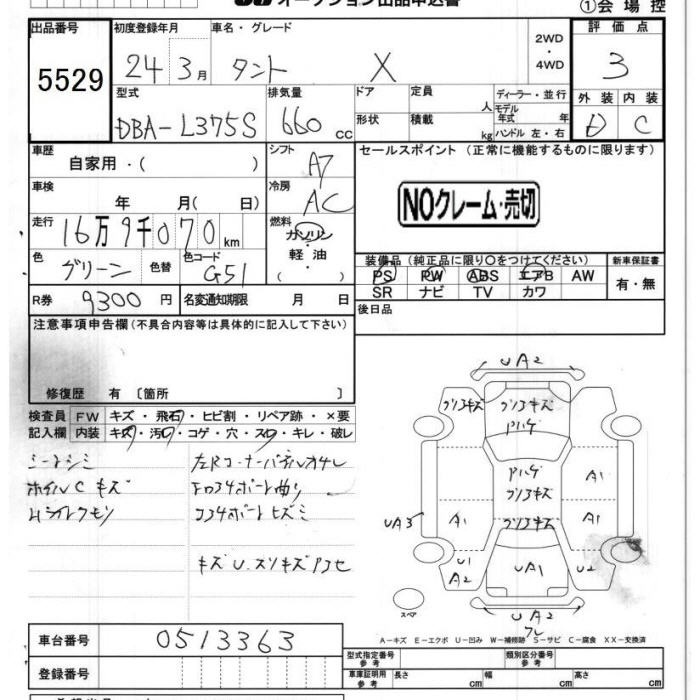 オークション出品申込書
①会場控
出品番号 初度登録年月 車名・グレード 2WD・4WD 評価点
5529 24年 3月 タント X 3
型式 排気量 ドア 定員 人 ディーラー・並行 外装 内装
DBA-L375S 660cc 形状 積載 kg モデル年式 年 ハンドル 左・右 D C
車歴 シフト セールスポイント (正常に機能するものに限ります)
自家用・( ) A7
車検 冷房 NOクレーム・売切
年 月( 日) AC
走行 16万9千070km 燃料
ガソリン・軽油( )
色 グリーン 色替 色コード G51
装備品(純正品に限り○をつけてください) 新車保証書
PS PW ABS エアB AW 有・無
SR ナビ TV カワ
R券 9300円 名変通知期限 月 日
後日品
注意事項申告欄(不具合内容等は具体的に記入して下さい)
修復歴 有 〔箇所 〕
検査員記入欄 FW キズ・飛石・ヒビ割・リペア跡・×要
内装 キズ・汚レ・コゲ・穴・スレ・キレ・破レ
シートシミ
ホイルCキズ
左Rコーナーパネルオサレ
キズU.スリキズアコセ
UA2
クリコキズ クリコキズ
ハゲ
ハゲ
クリコキズ A1
UA3 A1 クリコキズ A1
U1 A2 UA1 U2
UA2
スペア
A-キズ E-エクボ U-凹み W-補修跡 S-サビ C-腐食 XX-交換済
車台番号 0513363
型式指定番号 参考 類別区分番号 参考
登録番号 車庫証明用 参考 長さ cm 幅 cm 高さ cm